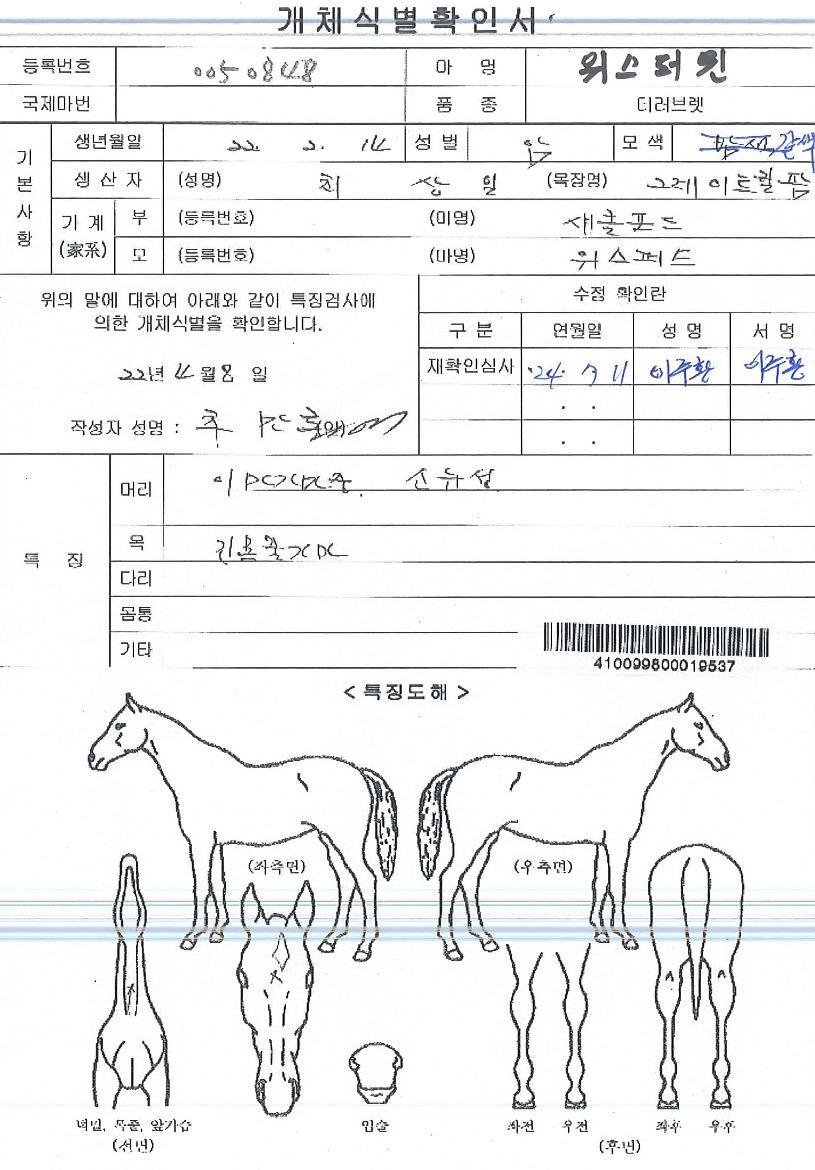 개체식별확인서
등록번호 0050848 마 명 위스퍼윈
국제마번 품 종 더러브렛
기본사항 생년월일 22. 2. 14 성별 암 모색 갈색
생산자 (성명) 최상일 (목장명) 그레이트힐팜
가계 (家系) 부 (등록번호) (마명) 섀클포드
모 (등록번호) (마명) 위스퍼드
위의 말에 대하여 아래와 같이 특징검사에
의한 개체식별을 확인합니다.
22년 4월 8일
작성자 성명 :
수정 확인란
구 분 연월일 성 명 서 명
재확인심사 '24. 7 11 이주환 이주환
. .
. .
특 징
머리
목
다리
몸통
기타
410099800019537
< 특징도해 >
(좌측면) (우측면)
턱밑, 목줄, 앞가슴 입술 좌전 우전 좌후 우후
(전면) (후면)